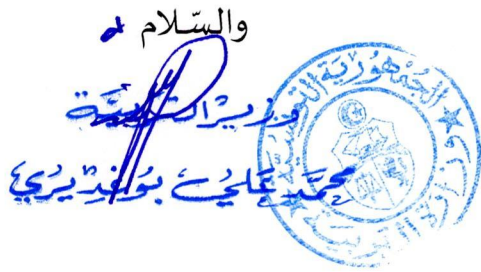 والسّلام
وزير التربية
محمد علي بوغديري
الجمهورية التونسية
وزارة التربية